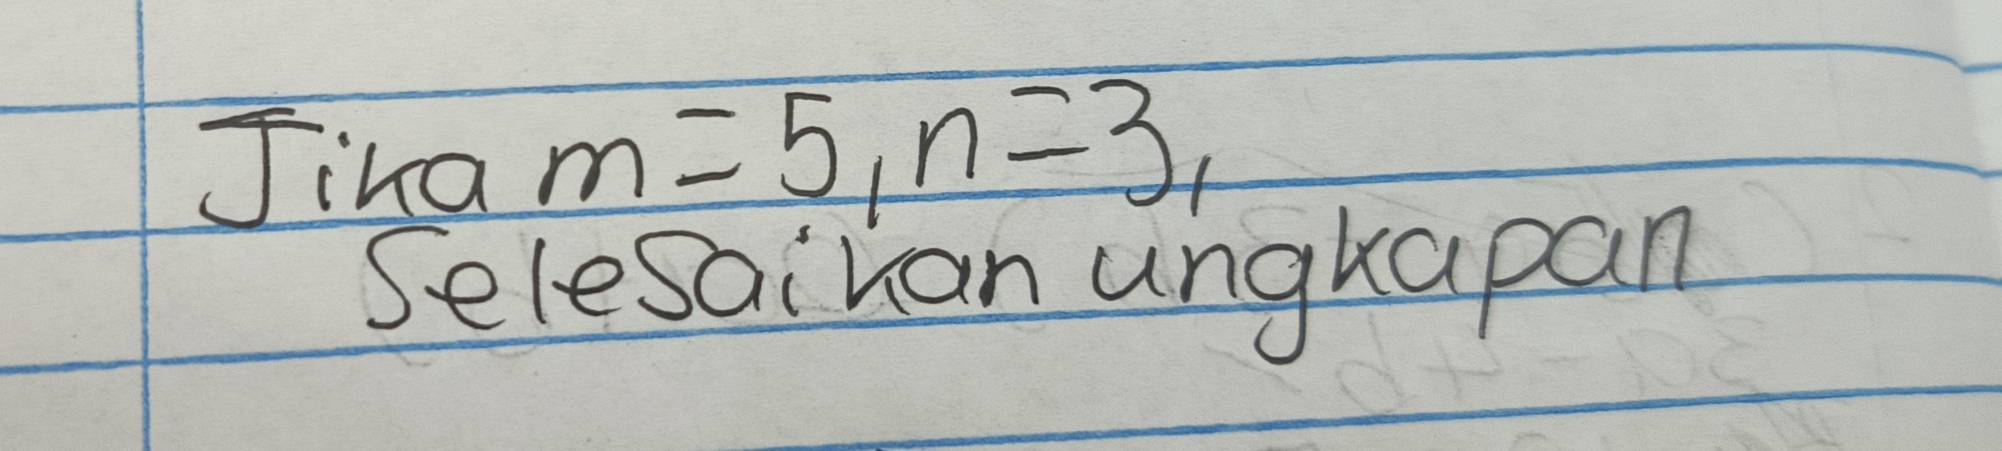 Jika m = 5, n = 3,
Selesaikan ungkapan